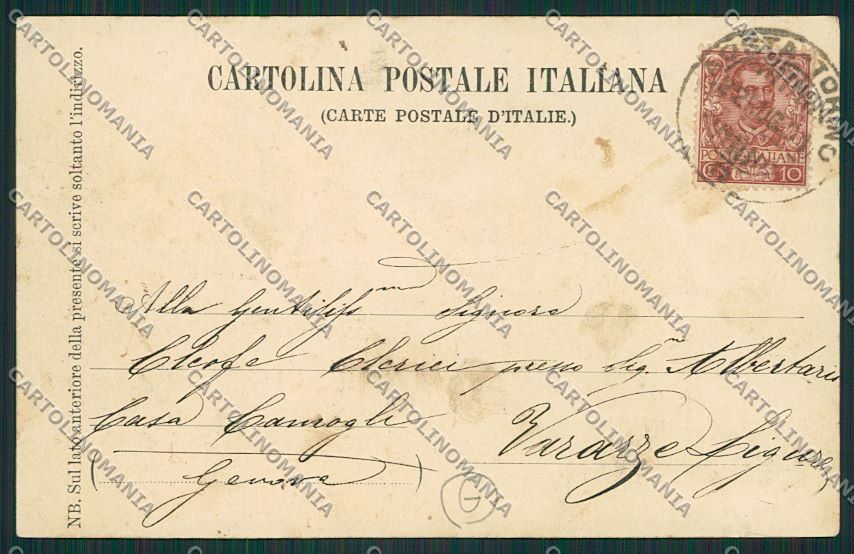 CARTOLINA POSTALE ITALIANA
(CARTE POSTALE D'ITALIE.)
NB. Sul lato anteriore della presente si scrive soltanto l'indirizzo.
POSTE ITALIANE
C. 10
TORINO
Alla Gentiliss ma Signora
Cleofe Clerici presso Sig.ra Albertario
Casa Camogli Varazze Ligure
(Genova)
CARTOLINOMANIA